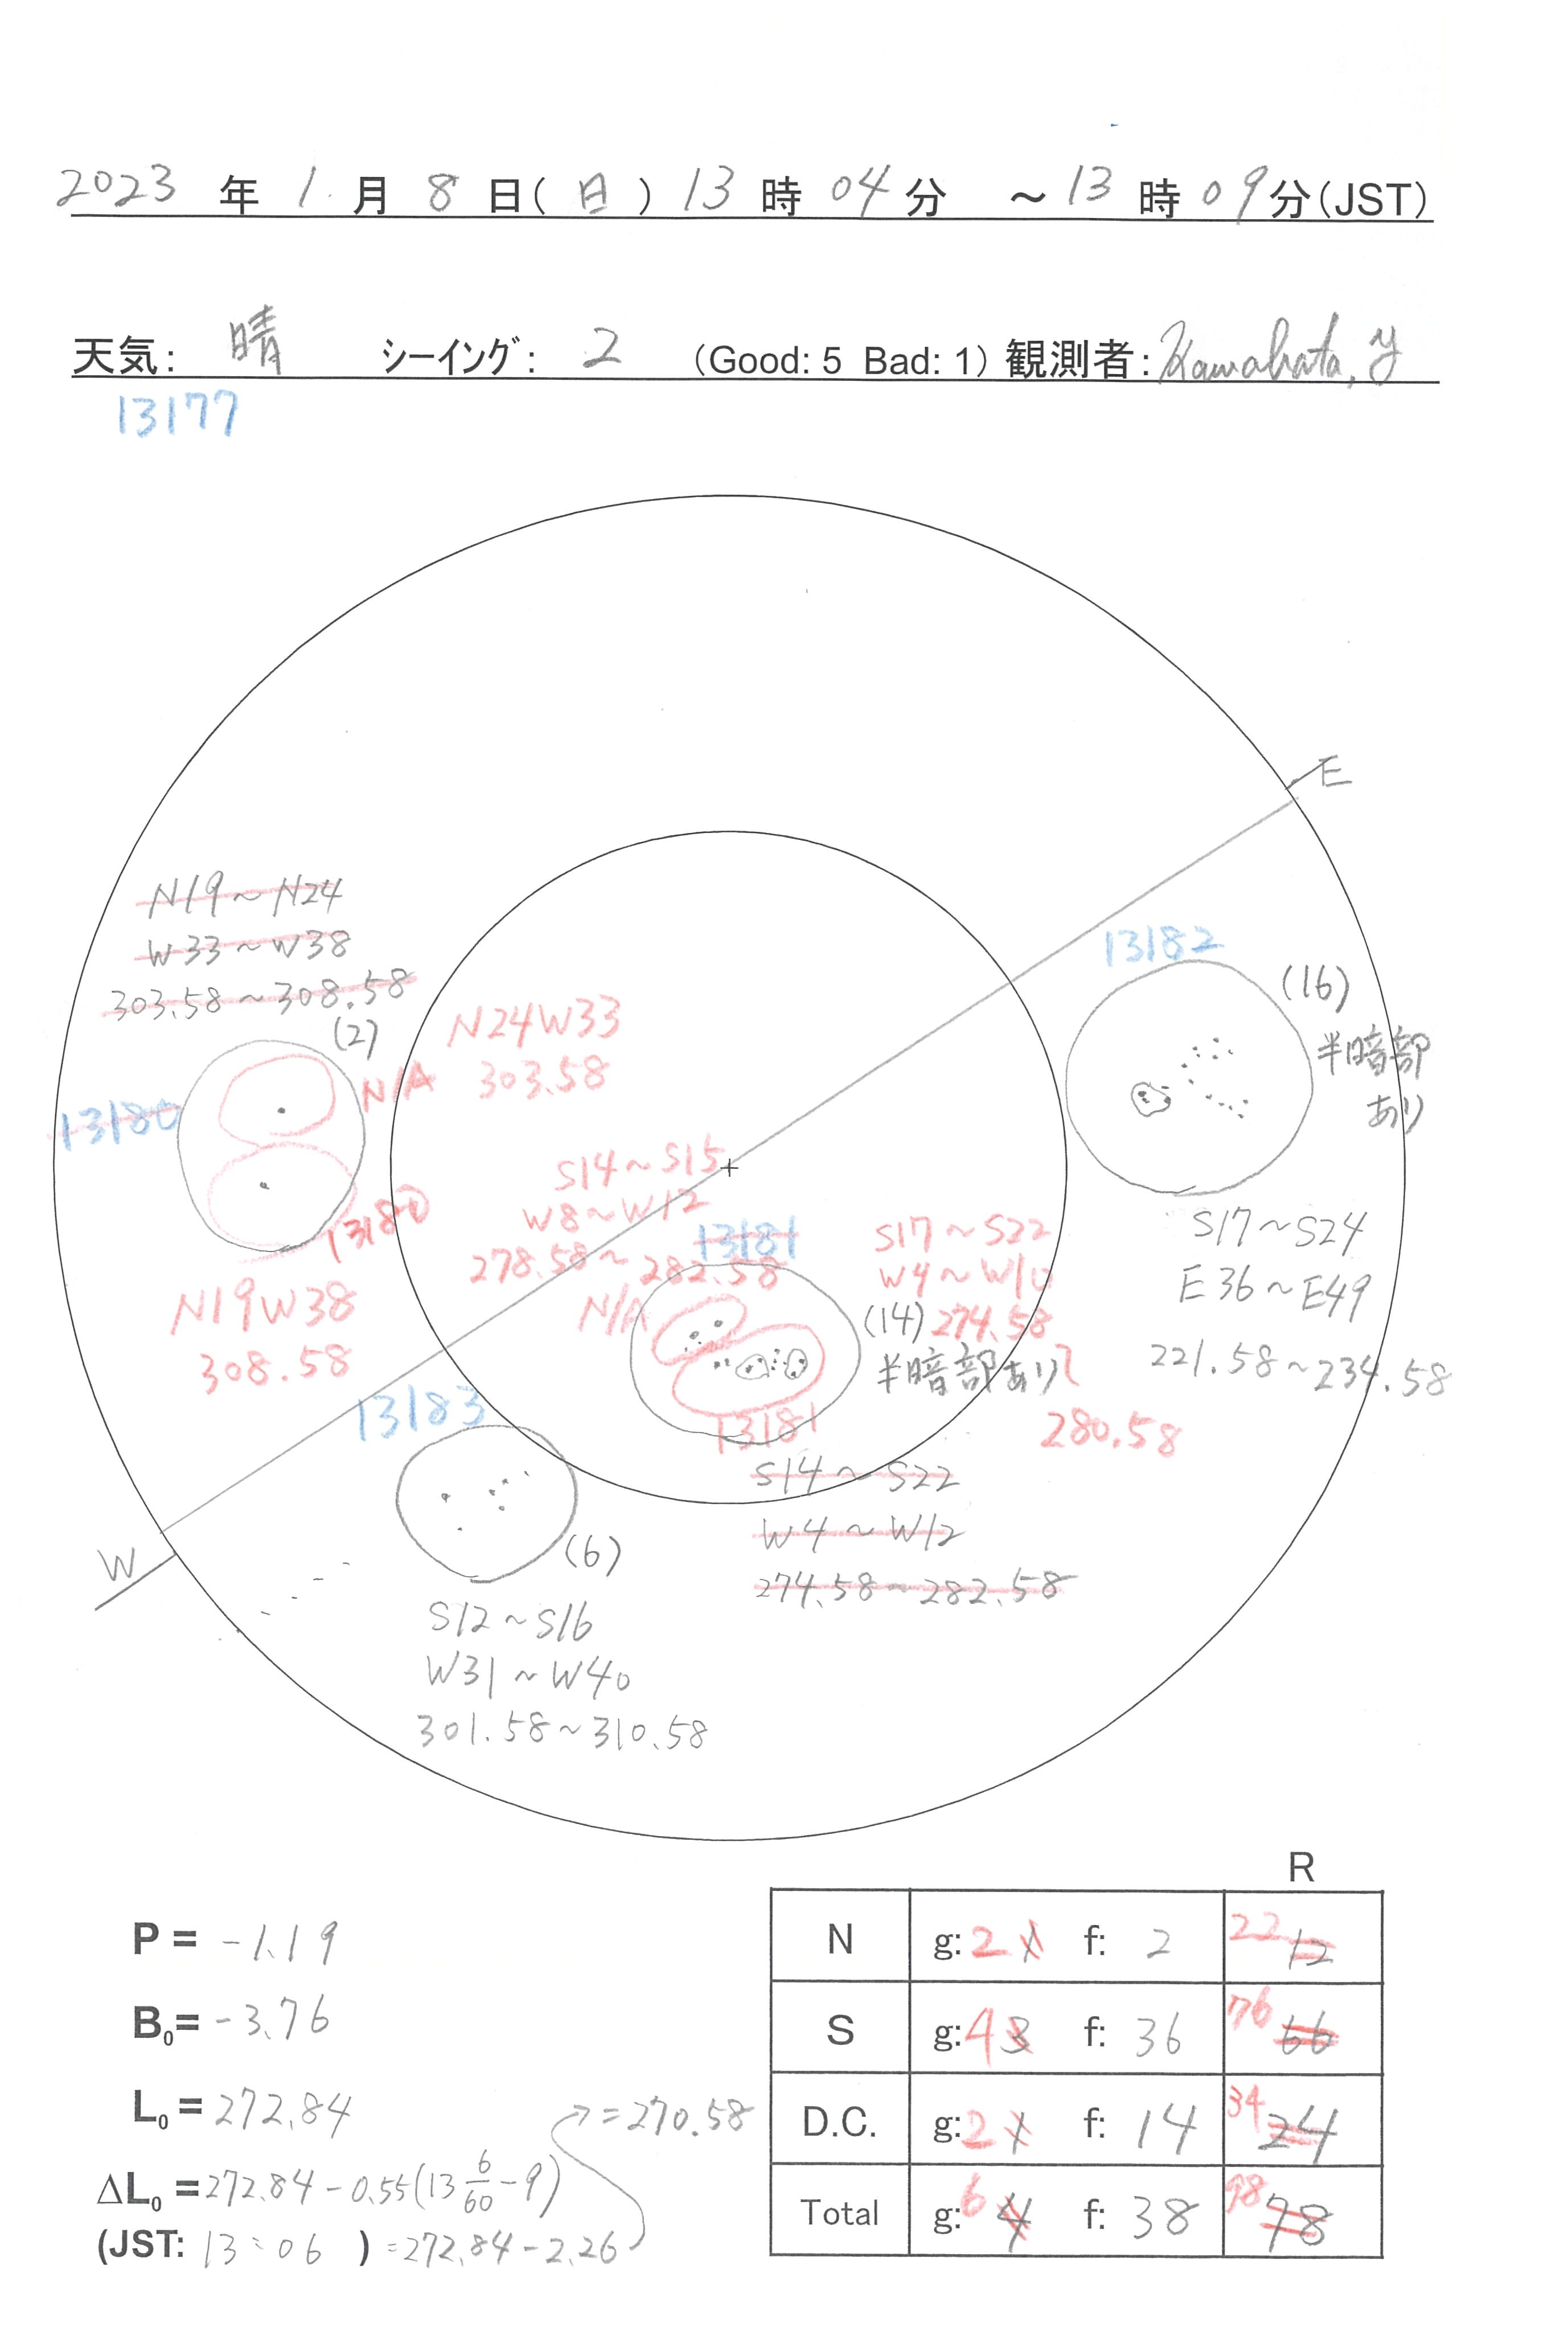 2023 年 1 月 8 日(日) 13 時 04 分 ~13 時 09 分(JST)
天気: 晴 シーイング: 2 (Good: 5 Bad: 1) 観測者: Kawabata, Y
13177
E
N19~N24
W33~W38
303.58~308.58
(2)
N24W33
303.58
N/A
13180
13180
N19W38
308.58
13182
(16)
半暗部
あり
S17~S24
E36~E49
221.58~234.58
S14~S15
W8~W12
278.58~282.58
N/A
13181
S17~S22
W4~W10
(14) 274.58
半暗部あり ~
280.58
13181
S14~S22
W4~W12
274.58~282.58
13183
(6)
S12~S16
W31~W40
301.58~310.58
W
R
N g: 2 1 f: 2 22 12
S g: 4 3 f: 36 76 66
D.C. g: 2 1 f: 14 34 24
Total g: 6 4 f: 38 98 78
P = -1.19
B0 = -3.76
L0 = 272.84
ΔL0 = 272.84 - 0.55(13 6/60 - 9)
(JST: 13:06 ) = 272.84 - 2.26
= 270.58